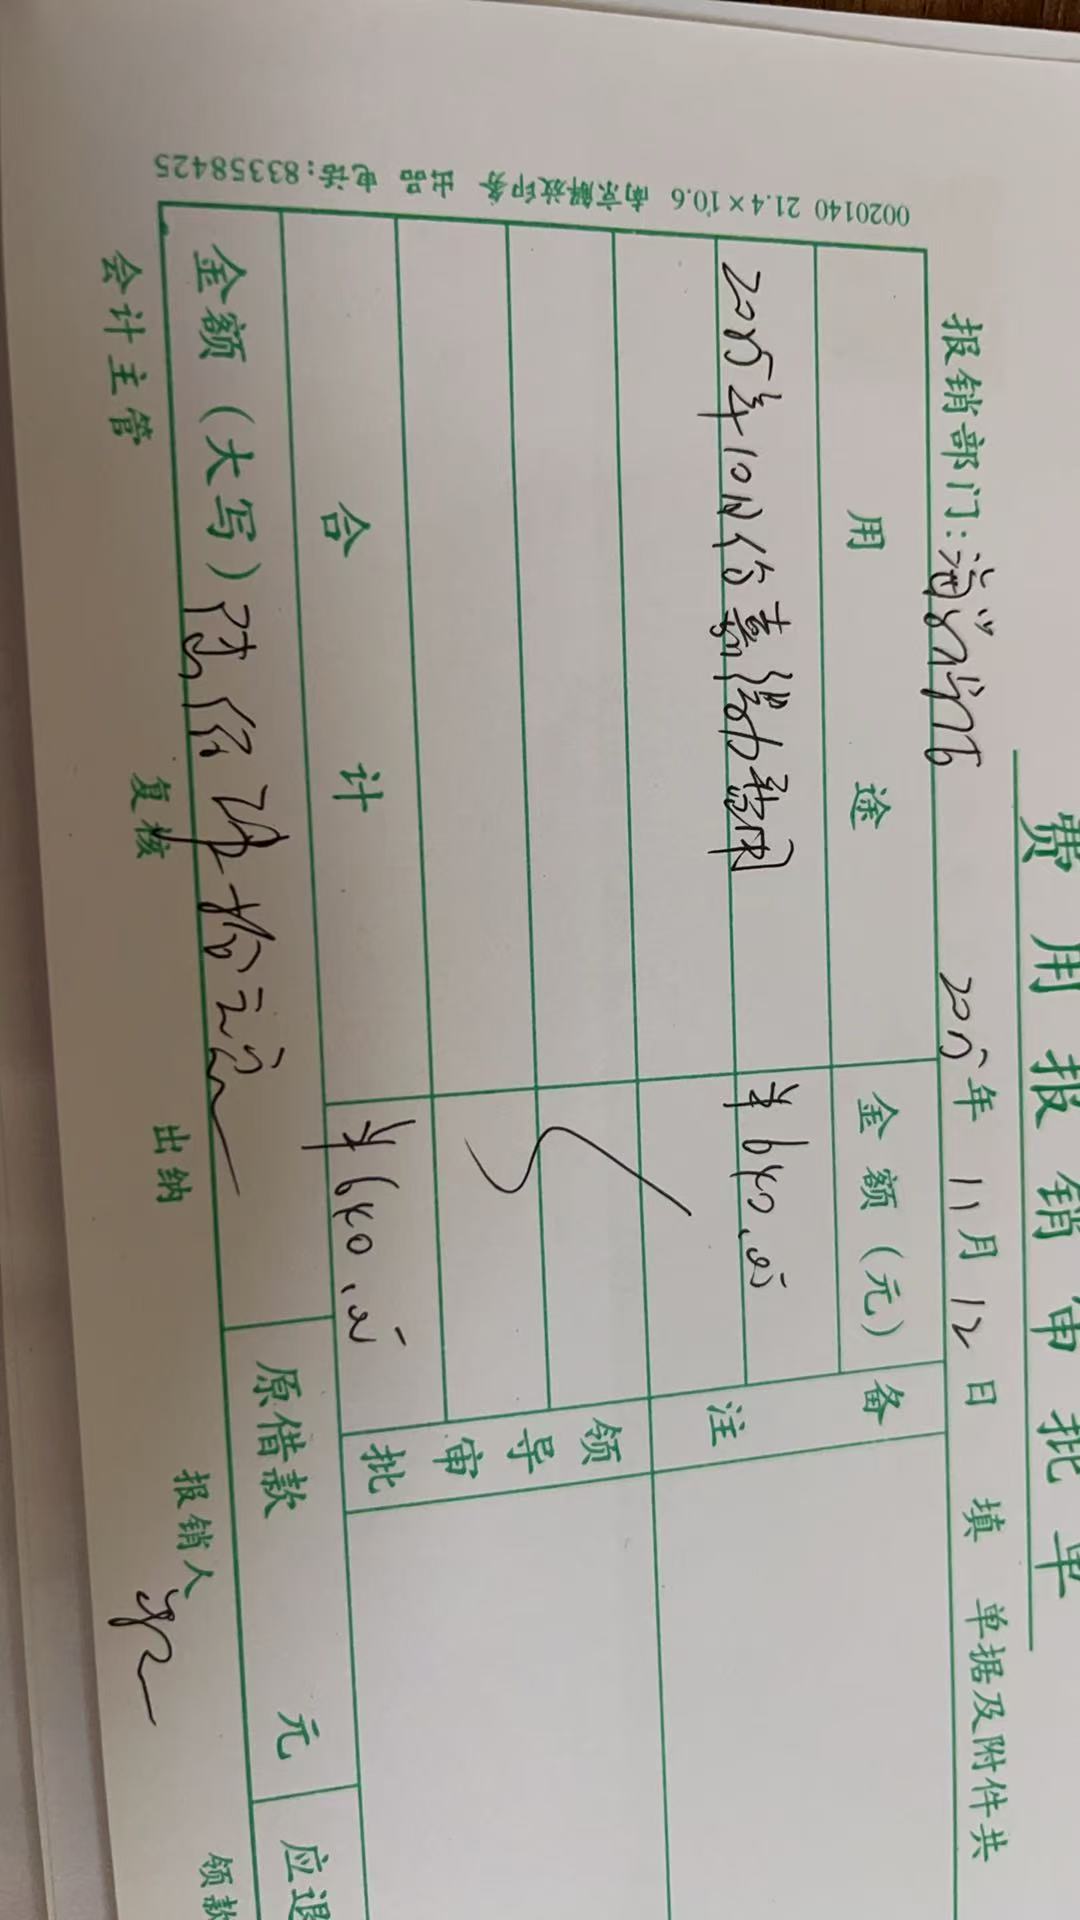 费用报销审批单
报销部门: 2025年11月12日填 单据及附件共
用途 金额(元) 备注
2025年10月份 费用 ¥640.00
领导审批
合计 ¥640.00
金额(大写) 陆佰肆拾元 原借款 元 应退
会计主管 复核 出纳 报销人 领款
0020140 21.4×10.6 南京解放印务 出品 电话:83358425